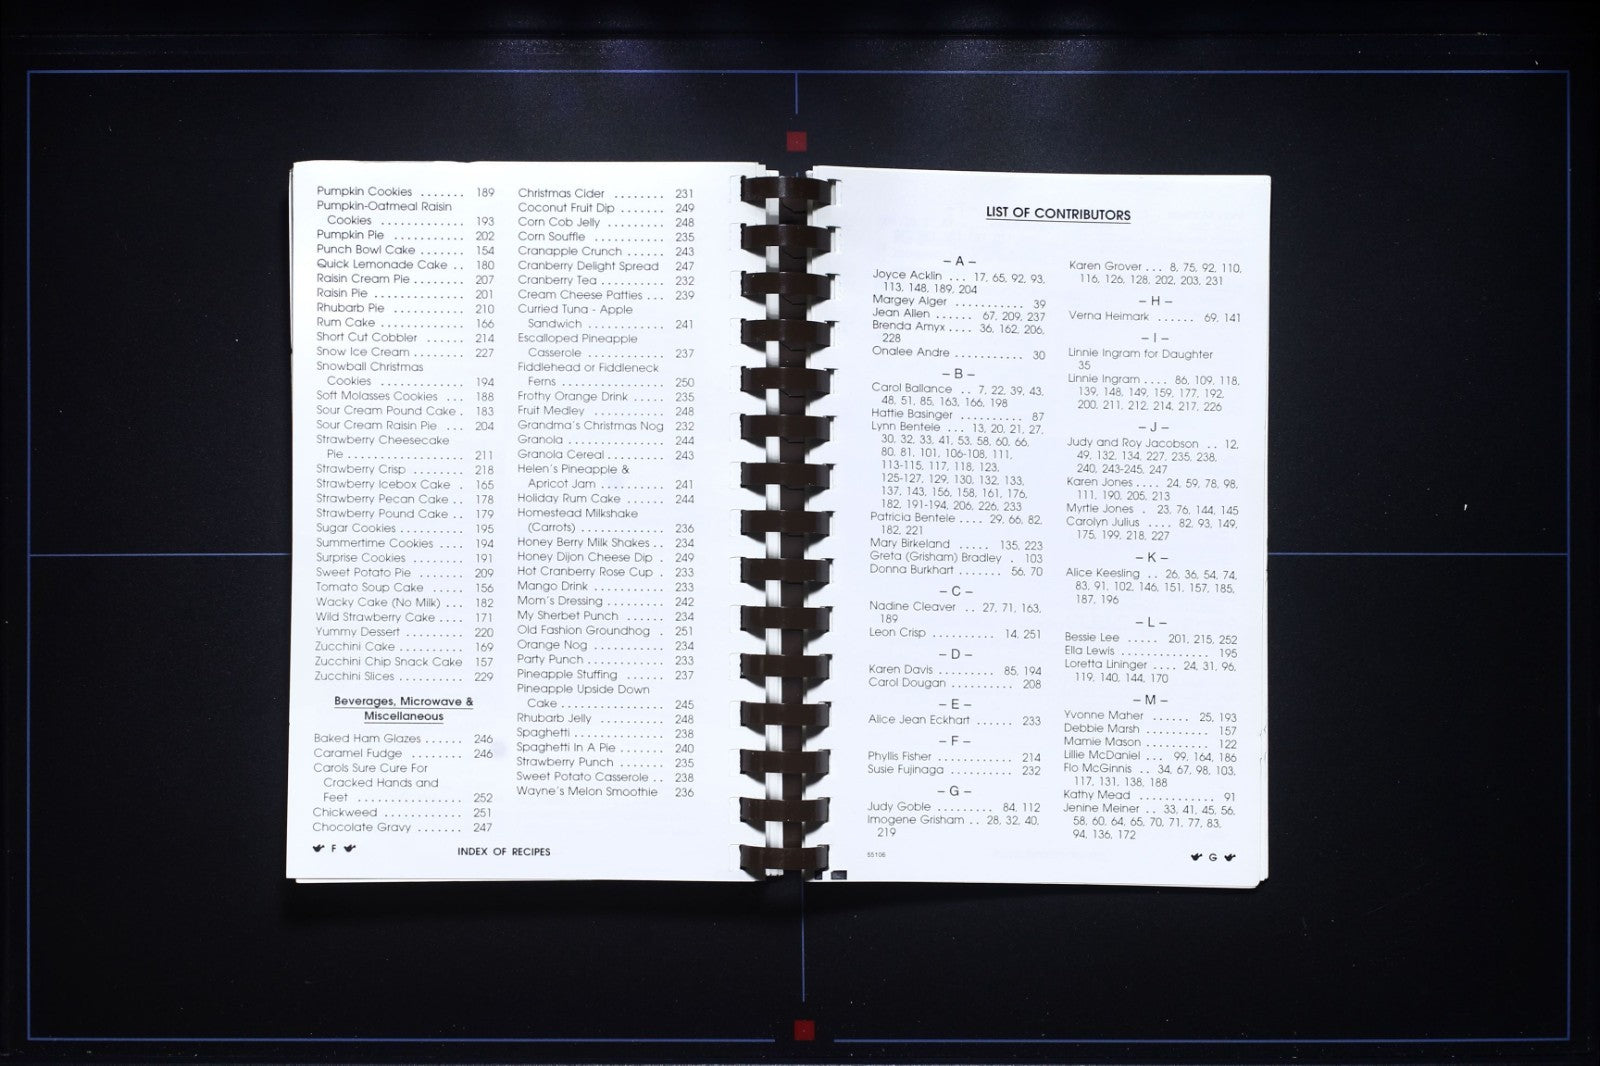 Pumpkin Cookies ....... 189
Pumpkin-Oatmeal Raisin
Cookies ............ 193
Pumpkin Pie ........... 202
Punch Bowl Cake ....... 154
Quick Lemonade Cake .. 180
Raisin Cream Pie ....... 207
Raisin Pie ............. 201
Rhubarb Pie ........... 210
Rum Cake ............ 166
Short Cut Cobbler ...... 214
Snow Ice Cream ....... 227
Snowball Christmas
Cookies ............ 194
Soft Molasses Cookies ... 188
Sour Cream Pound Cake . 183
Sour Cream Raisin Pie ... 204
Strawberry Cheesecake
Pie ................ 211
Strawberry Crisp ....... 218
Strawberry Icebox Cake . 165
Strawberry Pecan Cake .. 178
Strawberry Pound Cake .. 179
Sugar Cookies ......... 195
Summertime Cookies .... 194
Surprise Cookies ........ 191
Sweet Potato Pie ....... 209
Tomato Soup Cake ..... 156
Wacky Cake (No Milk) ... 182
Wild Strawberry Cake .... 171
Yummy Dessert ......... 220
Zucchini Cake .......... 169
Zucchini Chip Snack Cake 157
Zucchini Slices .......... 229
Beverages, Microwave &
Miscellaneous
Baked Ham Glazes ...... 246
Caramel Fudge ........ 246
Carols Sure Cure For
Cracked Hands and
Feet ............... 252
Chickweed ............ 251
Chocolate Gravy ....... 247
Christmas Cider ........ 231
Coconut Fruit Dip ....... 249
Corn Cob Jelly ......... 248
Corn Souffle ........... 235
Cranapple Crunch ...... 243
Cranberry Delight Spread 247
Cranberry Tea .......... 232
Cream Cheese Patties ... 239
Curried Tuna - Apple
Sandwich ............ 241
Escalloped Pineapple
Casserole ............ 237
Fiddlehead or Fiddleneck
Ferns ............... 250
Frothy Orange Drink ..... 235
Fruit Medley ........... 248
Grandma's Christmas Nog 232
Granola .............. 244
Granola Cereal ......... 243
Helen's Pineapple &
Apricot Jam .......... 241
Holiday Rum Cake ...... 244
Homestead Milkshake
(Carrots) ............. 236
Honey Berry Milk Shakes .. 234
Honey Dijon Cheese Dip . 249
Hot Cranberry Rose Cup . 233
Mango Drink ........... 233
Mom's Dressing ......... 242
My Sherbet Punch ...... 234
Old Fashion Groundhog . 251
Orange Nog ........... 234
Party Punch ............ 233
Pineapple Stuffing ...... 237
Pineapple Upside Down
Cake ............... 245
Rhubarb Jelly .......... 248
Spaghetti ............. 238
Spaghetti In A Pie ....... 240
Strawberry Punch ....... 235
Sweet Potato Casserole .. 238
Wayne's Melon Smoothie 236
F INDEX OF RECIPES
LIST OF CONTRIBUTORS
– A –
Joyce Acklin ... 17, 65, 92, 93,
113, 148, 189, 204
Margey Alger ............ 39
Jean Allen ...... 67, 209, 237
Brenda Amyx .... 36, 162, 206,
228
Onalee Andre ........... 30
– B –
Carol Ballance .. 7, 22, 39, 43,
48, 51, 85, 163, 166, 198
Hattie Basinger .......... 87
Lynn Bentele ... 13, 20, 21, 27,
30, 32, 33, 41, 53, 58, 60, 66,
80, 81, 101, 106-108, 111,
113-115, 117, 118, 123,
125-127, 129, 130, 132, 133,
137, 143, 156, 158, 161, 176,
182, 191-194, 206, 226, 233
Patricia Bentele .... 29, 66, 82,
182, 221
Mary Birkeland ..... 135, 223
Greta (Grisham) Bradley . 103
Donna Burkhart ....... 56, 70
– C –
Nadine Cleaver .. 27, 71, 163,
189
Leon Crisp .......... 14, 251
– D –
Karen Davis ........... 85, 194
Carol Dougan .......... 208
– E –
Alice Jean Eckhart ...... 233
– F –
Phyllis Fisher ............ 214
Susie Fujinaga .......... 232
– G –
Judy Goble ......... 84, 112
Imogene Grisham .. 28, 32, 40,
219
Karen Grover ... 8, 75, 92, 110,
116, 126, 128, 202, 203, 231
– H –
Verna Heimark ...... 69, 141
– I –
Linnie Ingram for Daughter
35
Linnie Ingram .... 86, 109, 118,
139, 148, 149, 159, 177, 192,
200, 211, 212, 214, 217, 226
– J –
Judy and Roy Jacobson .. 12,
49, 132, 134, 227, 235, 238,
240, 243-245, 247
Karen Jones .... 24, 59, 78, 98,
111, 190, 205, 213
Myrtle Jones . 23, 76, 144, 145
Carolyn Julius .... 82, 93, 149,
175, 199, 218, 227
– K –
Alice Keesling .. 26, 36, 54, 74,
83, 91, 102, 146, 151, 157, 185,
187, 196
– L –
Bessie Lee ..... 201, 215, 252
Ella Lewis .............. 195
Loretta Lininger .... 24, 31, 96,
119, 140, 144, 170
– M –
Yvonne Maher ...... 25, 193
Debbie Marsh .......... 157
Mamie Mason .......... 122
Lillie McDaniel ... 99, 164, 186
Flo McGinnis .. 34, 67, 98, 103,
117, 131, 138, 188
Kathy Mead ............ 91
Jenine Meiner .. 33, 41, 45, 56,
58, 60, 64, 65, 70, 71, 77, 83,
94, 136, 172
55106
G